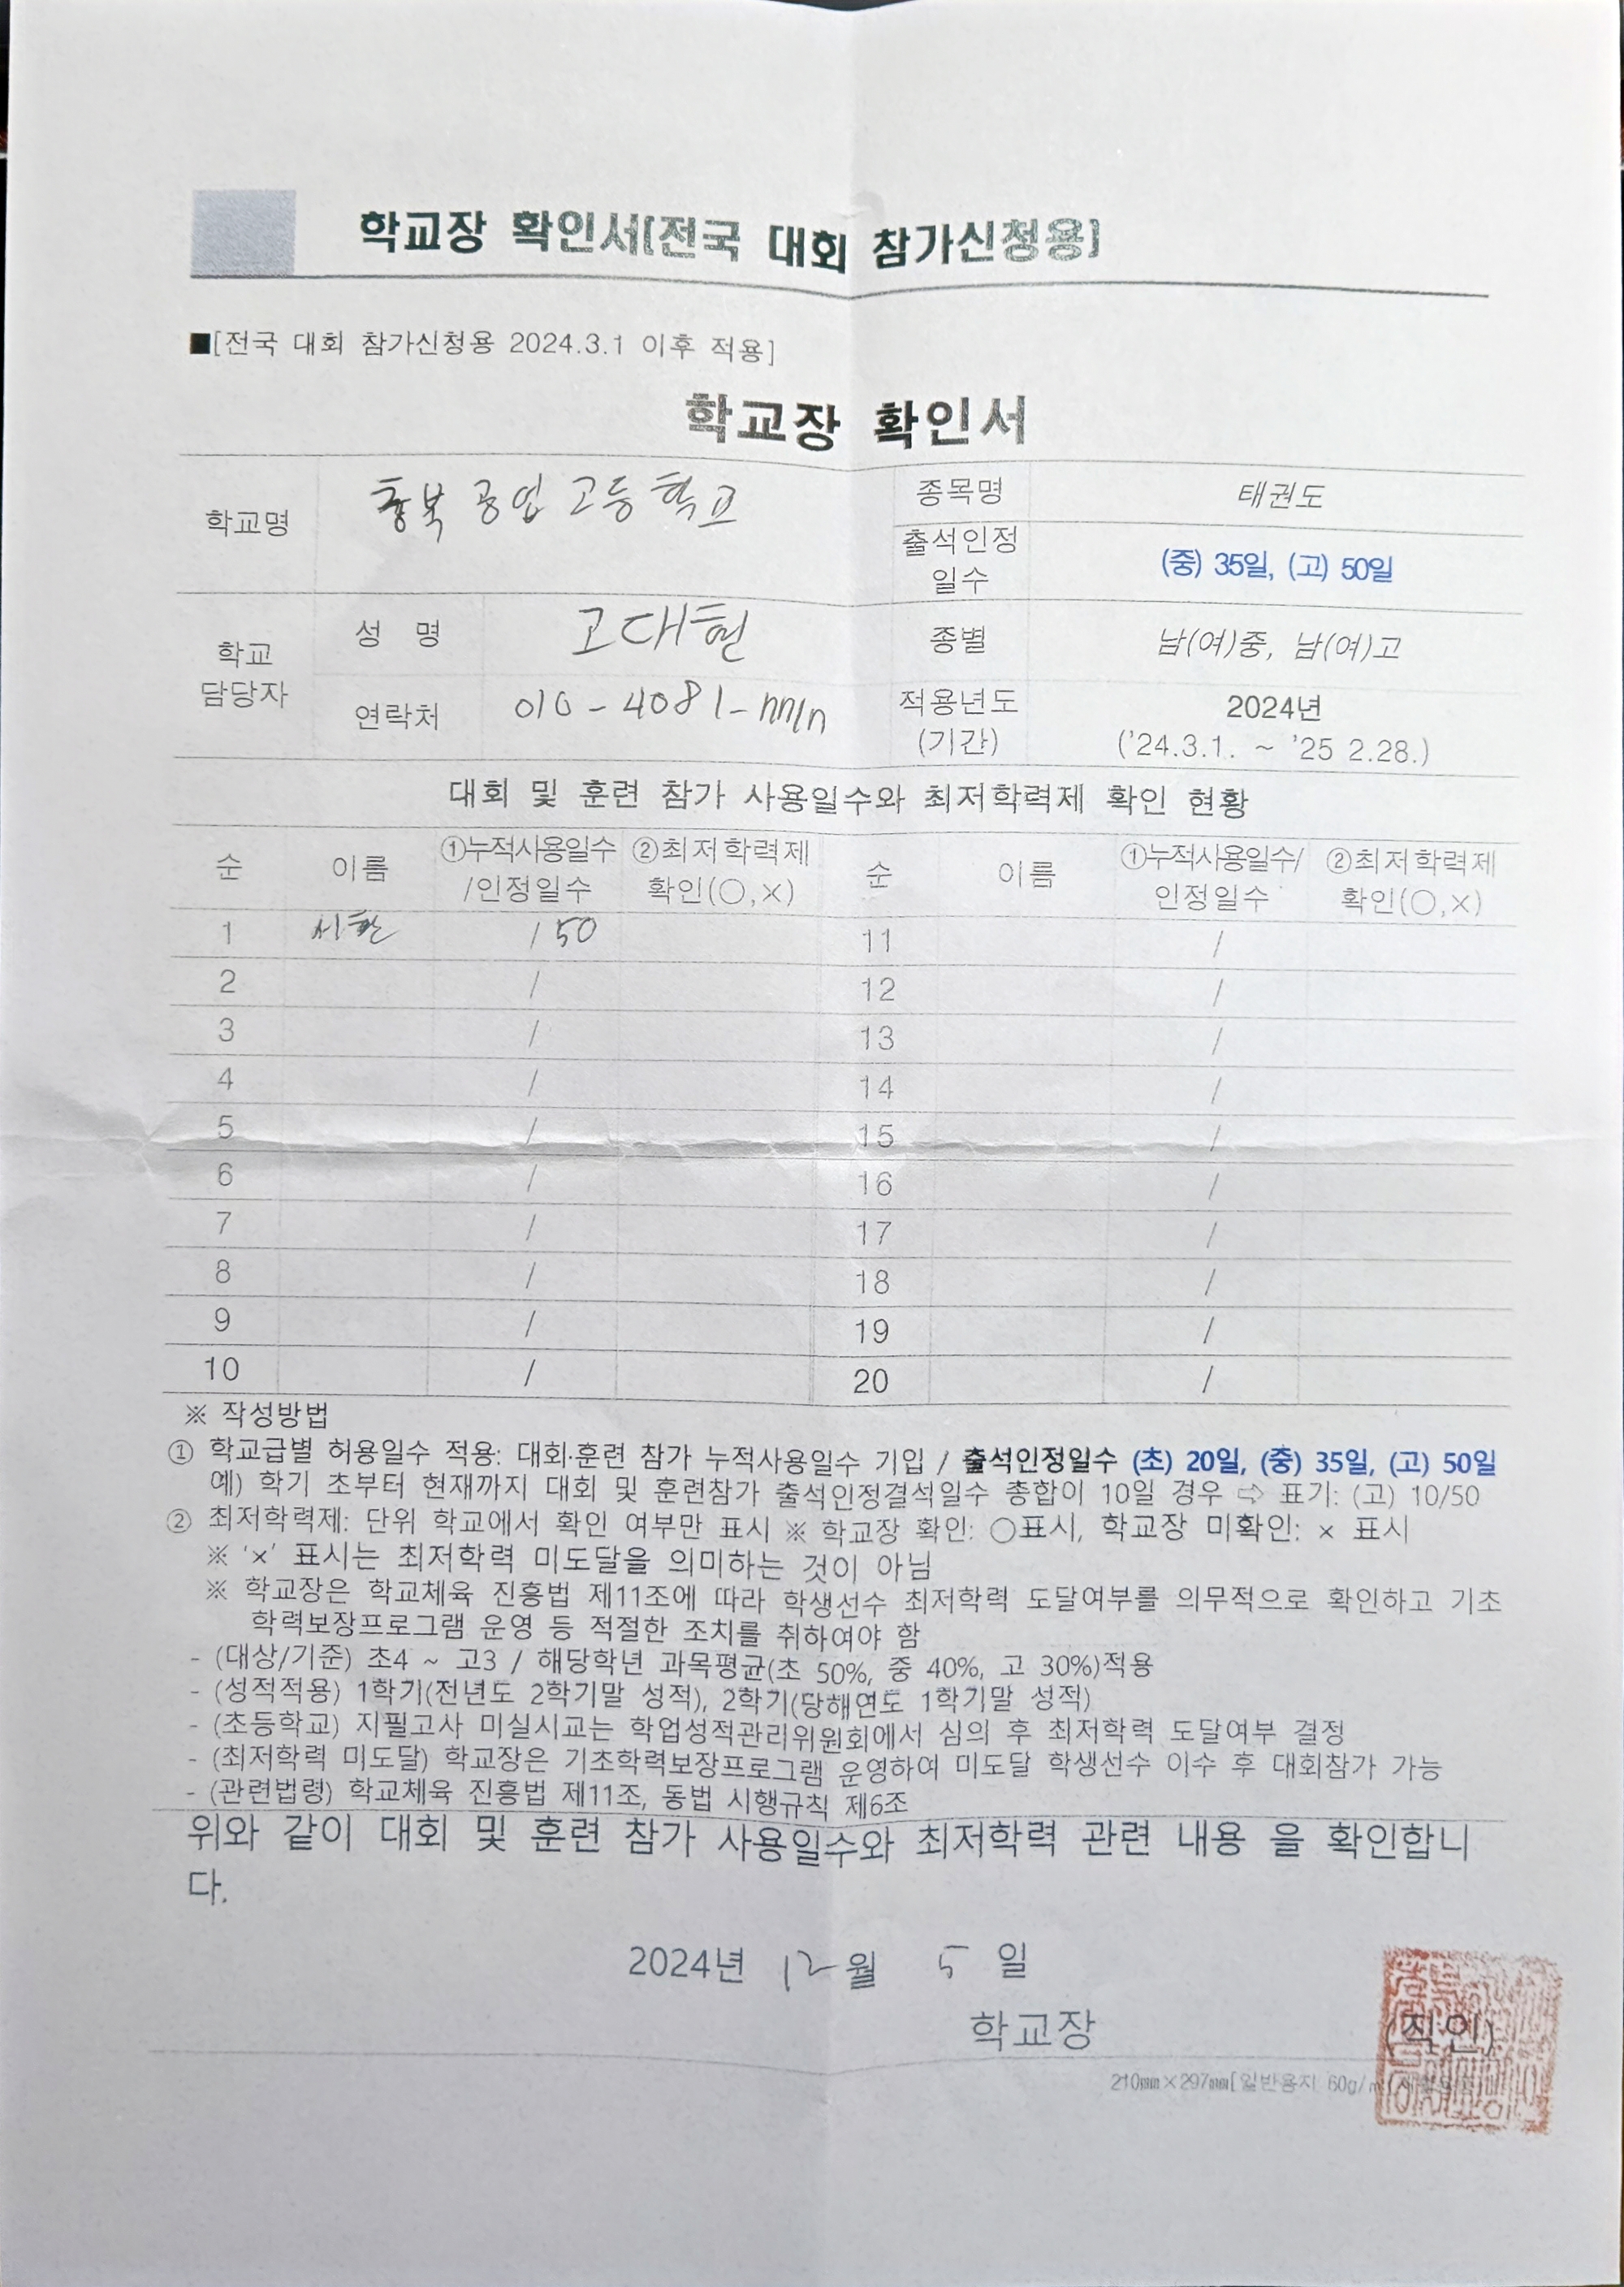 학교장 확인서[전국 대회 참가신청용]
■[전국 대회 참가신청용 2024.3.1 이후 적용]
학교장 확인서
학교명 충북 공업 고등 학교 종목명 태권도
출석인정 일수 (중) 35일, (고) 50일
학교 담당자 성 명 고대현 종별 남(여)중, 남(여)고
연락처 010-4081- 적용년도 (기간) 2024년 ('24.3.1. ~ '25 2.28.)
대회 및 훈련 참가 사용일수와 최저학력제 확인 현황
순 이름 ①누적사용일수 /인정일수 ②최저학력제 확인(○,×) 순 이름 ①누적사용일수/ 인정일수 ②최저학력제 확인(○,×)
1 / 50 11 /
2 / 12 /
3 / 13 /
4 / 14 /
5 / 15 /
6 / 16 /
7 / 17 /
8 / 18 /
9 / 19 /
10 / 20 /
※ 작성방법
① 학교급별 허용일수 적용: 대회·훈련 참가 누적사용일수 기입 / 출석인정일수 (초) 20일, (중) 35일, (고) 50일
예) 학기 초부터 현재까지 대회 및 훈련참가 출석인정결석일수 총합이 10일 경우 ⇨ 표기: (고) 10/50
② 최저학력제: 단위 학교에서 확인 여부만 표시 ※ 학교장 확인: ○표시, 학교장 미확인: × 표시
※ '×' 표시는 최저학력 미도달을 의미하는 것이 아님
※ 학교장은 학교체육 진흥법 제11조에 따라 학생선수 최저학력 도달여부를 의무적으로 확인하고 기초
학력보장프로그램 운영 등 적절한 조치를 취하여야 함
- (대상/기준) 초4 ~ 고3 / 해당학년 과목평균(초 50%, 중 40%, 고 30%)적용
- (성적적용) 1학기(전년도 2학기말 성적), 2학기(당해연도 1학기말 성적)
- (초등학교) 지필고사 미실시교는 학업성적관리위원회에서 심의 후 최저학력 도달여부 결정
- (최저학력 미도달) 학교장은 기초학력보장프로그램 운영하여 미도달 학생선수 이수 후 대회참가 가능
- (관련법령) 학교체육 진흥법 제11조, 동법 시행규칙 제6조
위와 같이 대회 및 훈련 참가 사용일수와 최저학력 관련 내용 을 확인합니
다.
2024년 12월 5 일
학교장 (직인)
210㎜×297㎜[일반용지 60g/㎡